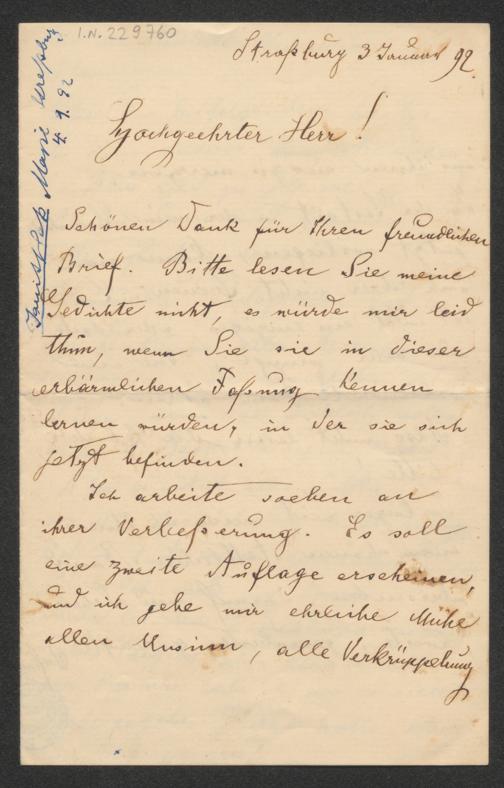 I.N. 229760
Straßburg 3 Januar 92.
Janitschek Marie
4. 9. 92
Hochgeehrter Herr!
Schönen Dank für Ihren freundlichen
Brief. Bitte lesen Sie meine
Gedichte nicht, es würde mir leid
thun, wenn Sie sie in dieser
erbärmlichen Faßung kennen
lernen würden, in der sie sich
jetzt befinden.
Ich arbeite soeben an
ihrer Verbeßerung. Es soll
eine zweite Auflage erscheinen,
und ich gebe mir ehrliche Mühe
allen Unsinn, alle Verkrüppelung